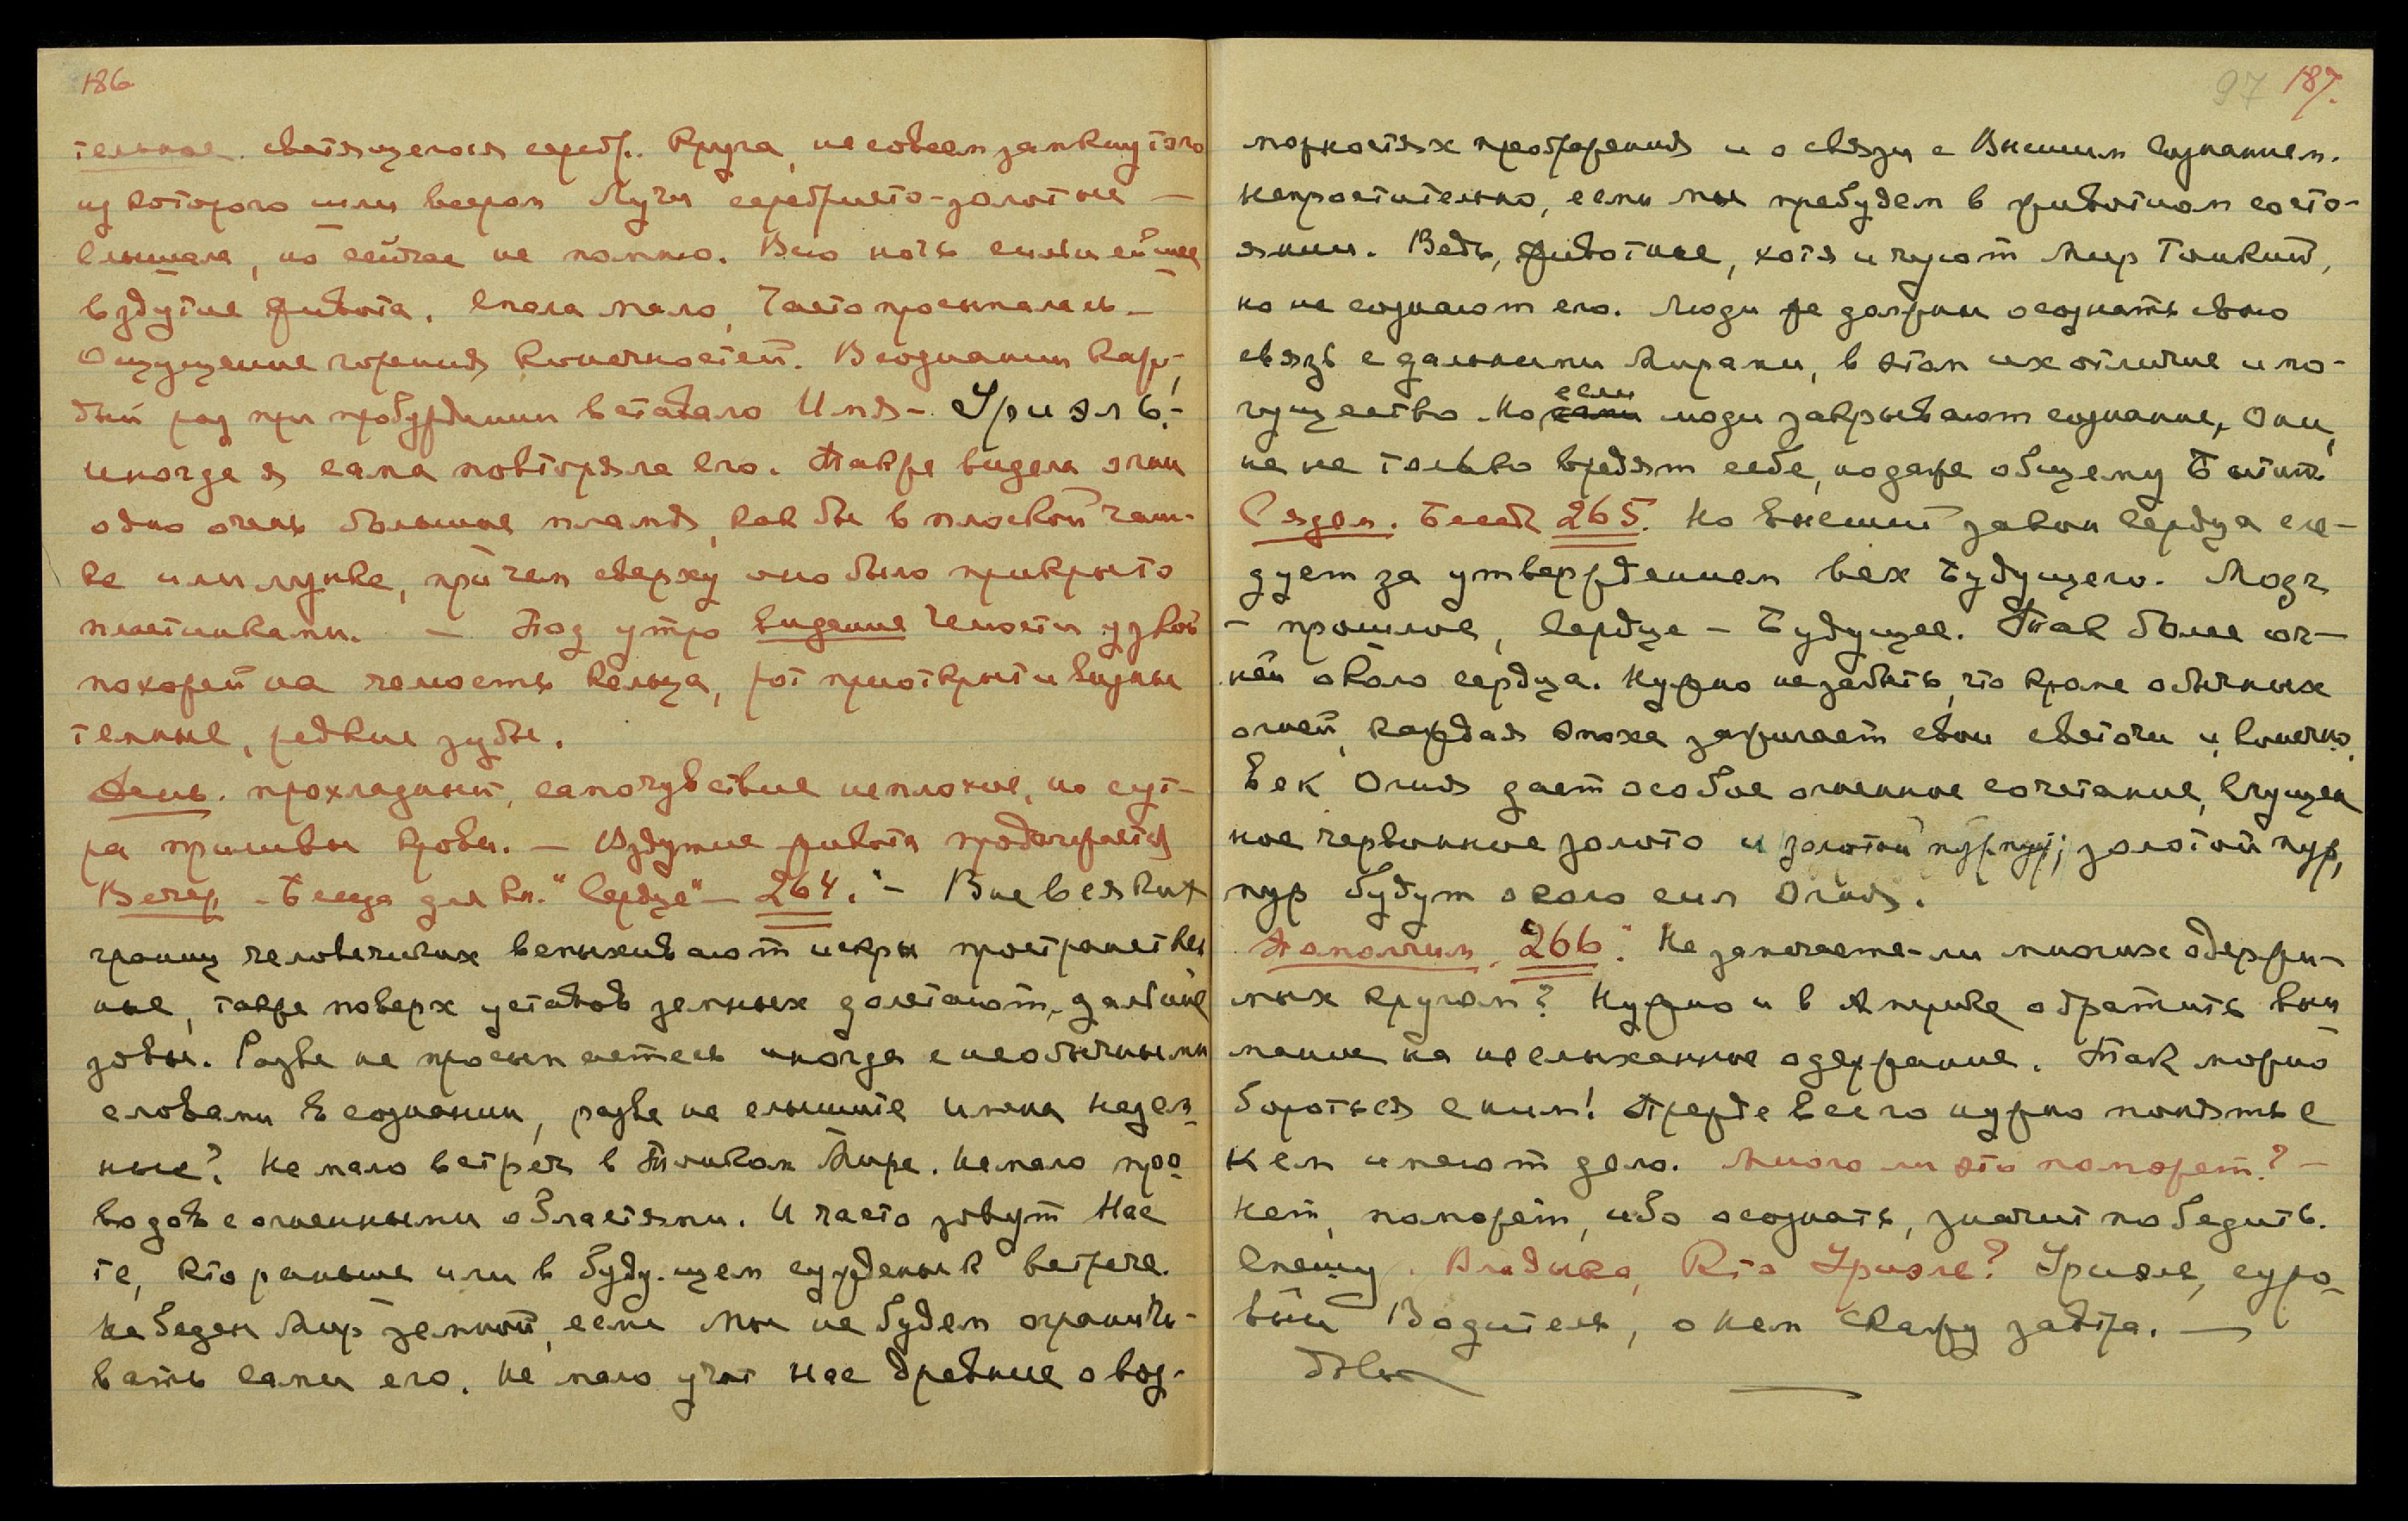 186
тельное. светящегося серебр. Круга, не совсем замкнутого
из которого шли веером Лучи серебристо-золотые —
Слышала, но сейчас не помню. Всю ночь сильнейшее
вздутие живота. Спала мало, часто просыпалась —
Ощущение горения конечностей. В сознании каж-
дый раз при пробуждении вставало Имя - Уриэль. -
иногда я сама повторяла его. Также видела огни
одно очень большое пламя, как бы в плоской чаш-
ке или лунке, при чем сверху оно было прикрыто
пластинками. — Под утро видение Челюсти узкой
похожей на челюсть кольца, рот приоткрыт и видны
темные, редкие зубы.
День. прохладный, самочувствие неплохое, но с ут-
ра приливы крови. — Вздутие живота продолжается
Вечер - Беседа для кн. "Сердце" — 264. "- Вне всяких
границ человеческих вспыхивают искры пространствен
ные, также поверх уставов земных долетают дальние
зовы. Разве не просыпаетесь иногда с необычными
словами в сознании, разве не слышите имена незем-
ные? Не мало встреч в Тонком Мире. Немало про-
водов с огненными областями. И часто зовут Нас
те, кто раньше или в буду-щем суждены к встрече.
Не беден Мир земной, если мы не будем ограничи-
вать сами его. Не мало учат нас древние о воз-
97 187.
можностях преображения и о связи с Высшим Сознанием.
Непростительно, если мы пребудем в животном состо-
янии. Ведь, животные, хотя и чуют Мир Тонкий,
но не сознают его. Люди же должны осознать свою
связь с дальними Мирами, в этом их отличие и мо-
гущество. Но если люди закрывают сознание, они,
не не только вредят себе, но даже общему Бытию.
Сядем. Беседа 265. Но высший закон Сердца сле-
дует за утверждением вех Будущего. Мозг
- прошлое, Сердце - Будущее. Так более ог-
ней около сердца. Нужно не забыть, что кроме обычных
огней, каждая эпоха зажигает свои светочи и, конечно,
Век Огня дает особое огненное сочетание, Сгущен
ное червонное золото и золотой пурпур; золотой пур-
пур будут около сил Огня.
Помолчим. 266." Не замечаете-ли многих одержи-
мых кругом? Нужно и в Америке обратить вни
мание на неслыханное одержание. Так можно
бороться с ним! Прежде всего нужно понять с
кем имеют дело. Много ли это поможет? —
Нет, поможет, ибо осознать, значит победить.
Спешу. Владыка, Кто Уриэль? Уриэль, суро-
вый Водитель, о нем скажу завтра. —